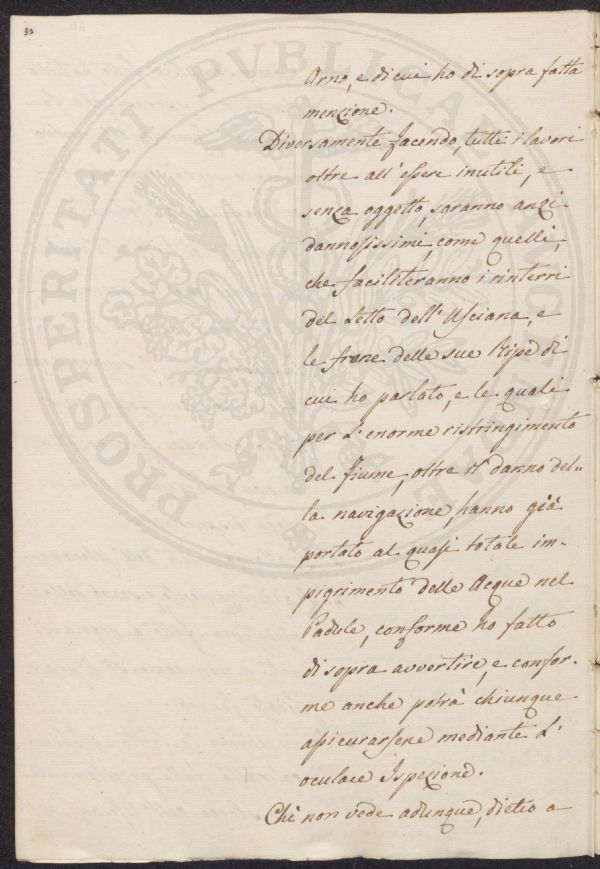 Arno, e di cui ho di sopra fatta
menzione.
Diversamente facendo, tutti i lavori
oltre all'essere inutili, e
senza oggetto, saranno anzi
dannosissimi, come quelli,
che faciliteranno i rinterri
del Letto dell'Usciana, e
le frane delle sue Ripe di
cui ho parlato, e le quali
per l'enorme ristringimento
del fiume, oltre il danno del„
la navigazione, hanno già
portato al quasi totale im„
pigrimento delle Acque nel
Padule, conforme ho fatto
di sopra avvertire, e confor„
me anche potrà chiunque
assicurarsene mediante l'
oculare Ispezione.
Chi non vede adunque, dietro a
PROSPERITATI PVBLICAE